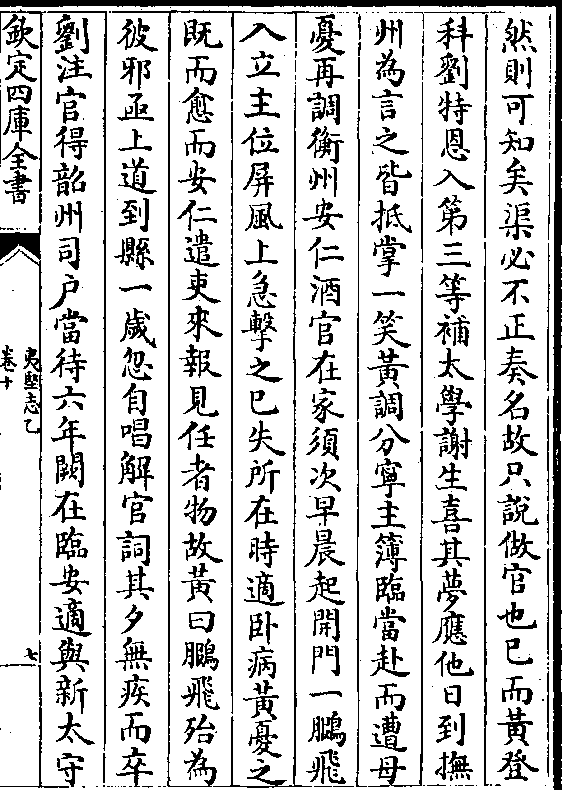 然則可知矣渠必不正奏名故只說做官也已而黃登
科劉特恩入第三等補太學謝生喜其夢應他日到撫
州為言之皆抵掌一笑黃調分寧主簿臨當赴而遭母
憂再調衡州安仁酒官在家須次早晨起開門一鵩飛
入立主位屏風上急擊之已失所在時適臥病黃憂之
既而愈而安仁遣吏來報見任者物故黃曰鵩飛殆為
彼邪亟上道到縣一歲忽自唱解官詞其夕無疾而卒
劉注官得韶州司户當待六年闕在臨安適與新太守
欽定四庫全書
夷堅志乙
卷十
七